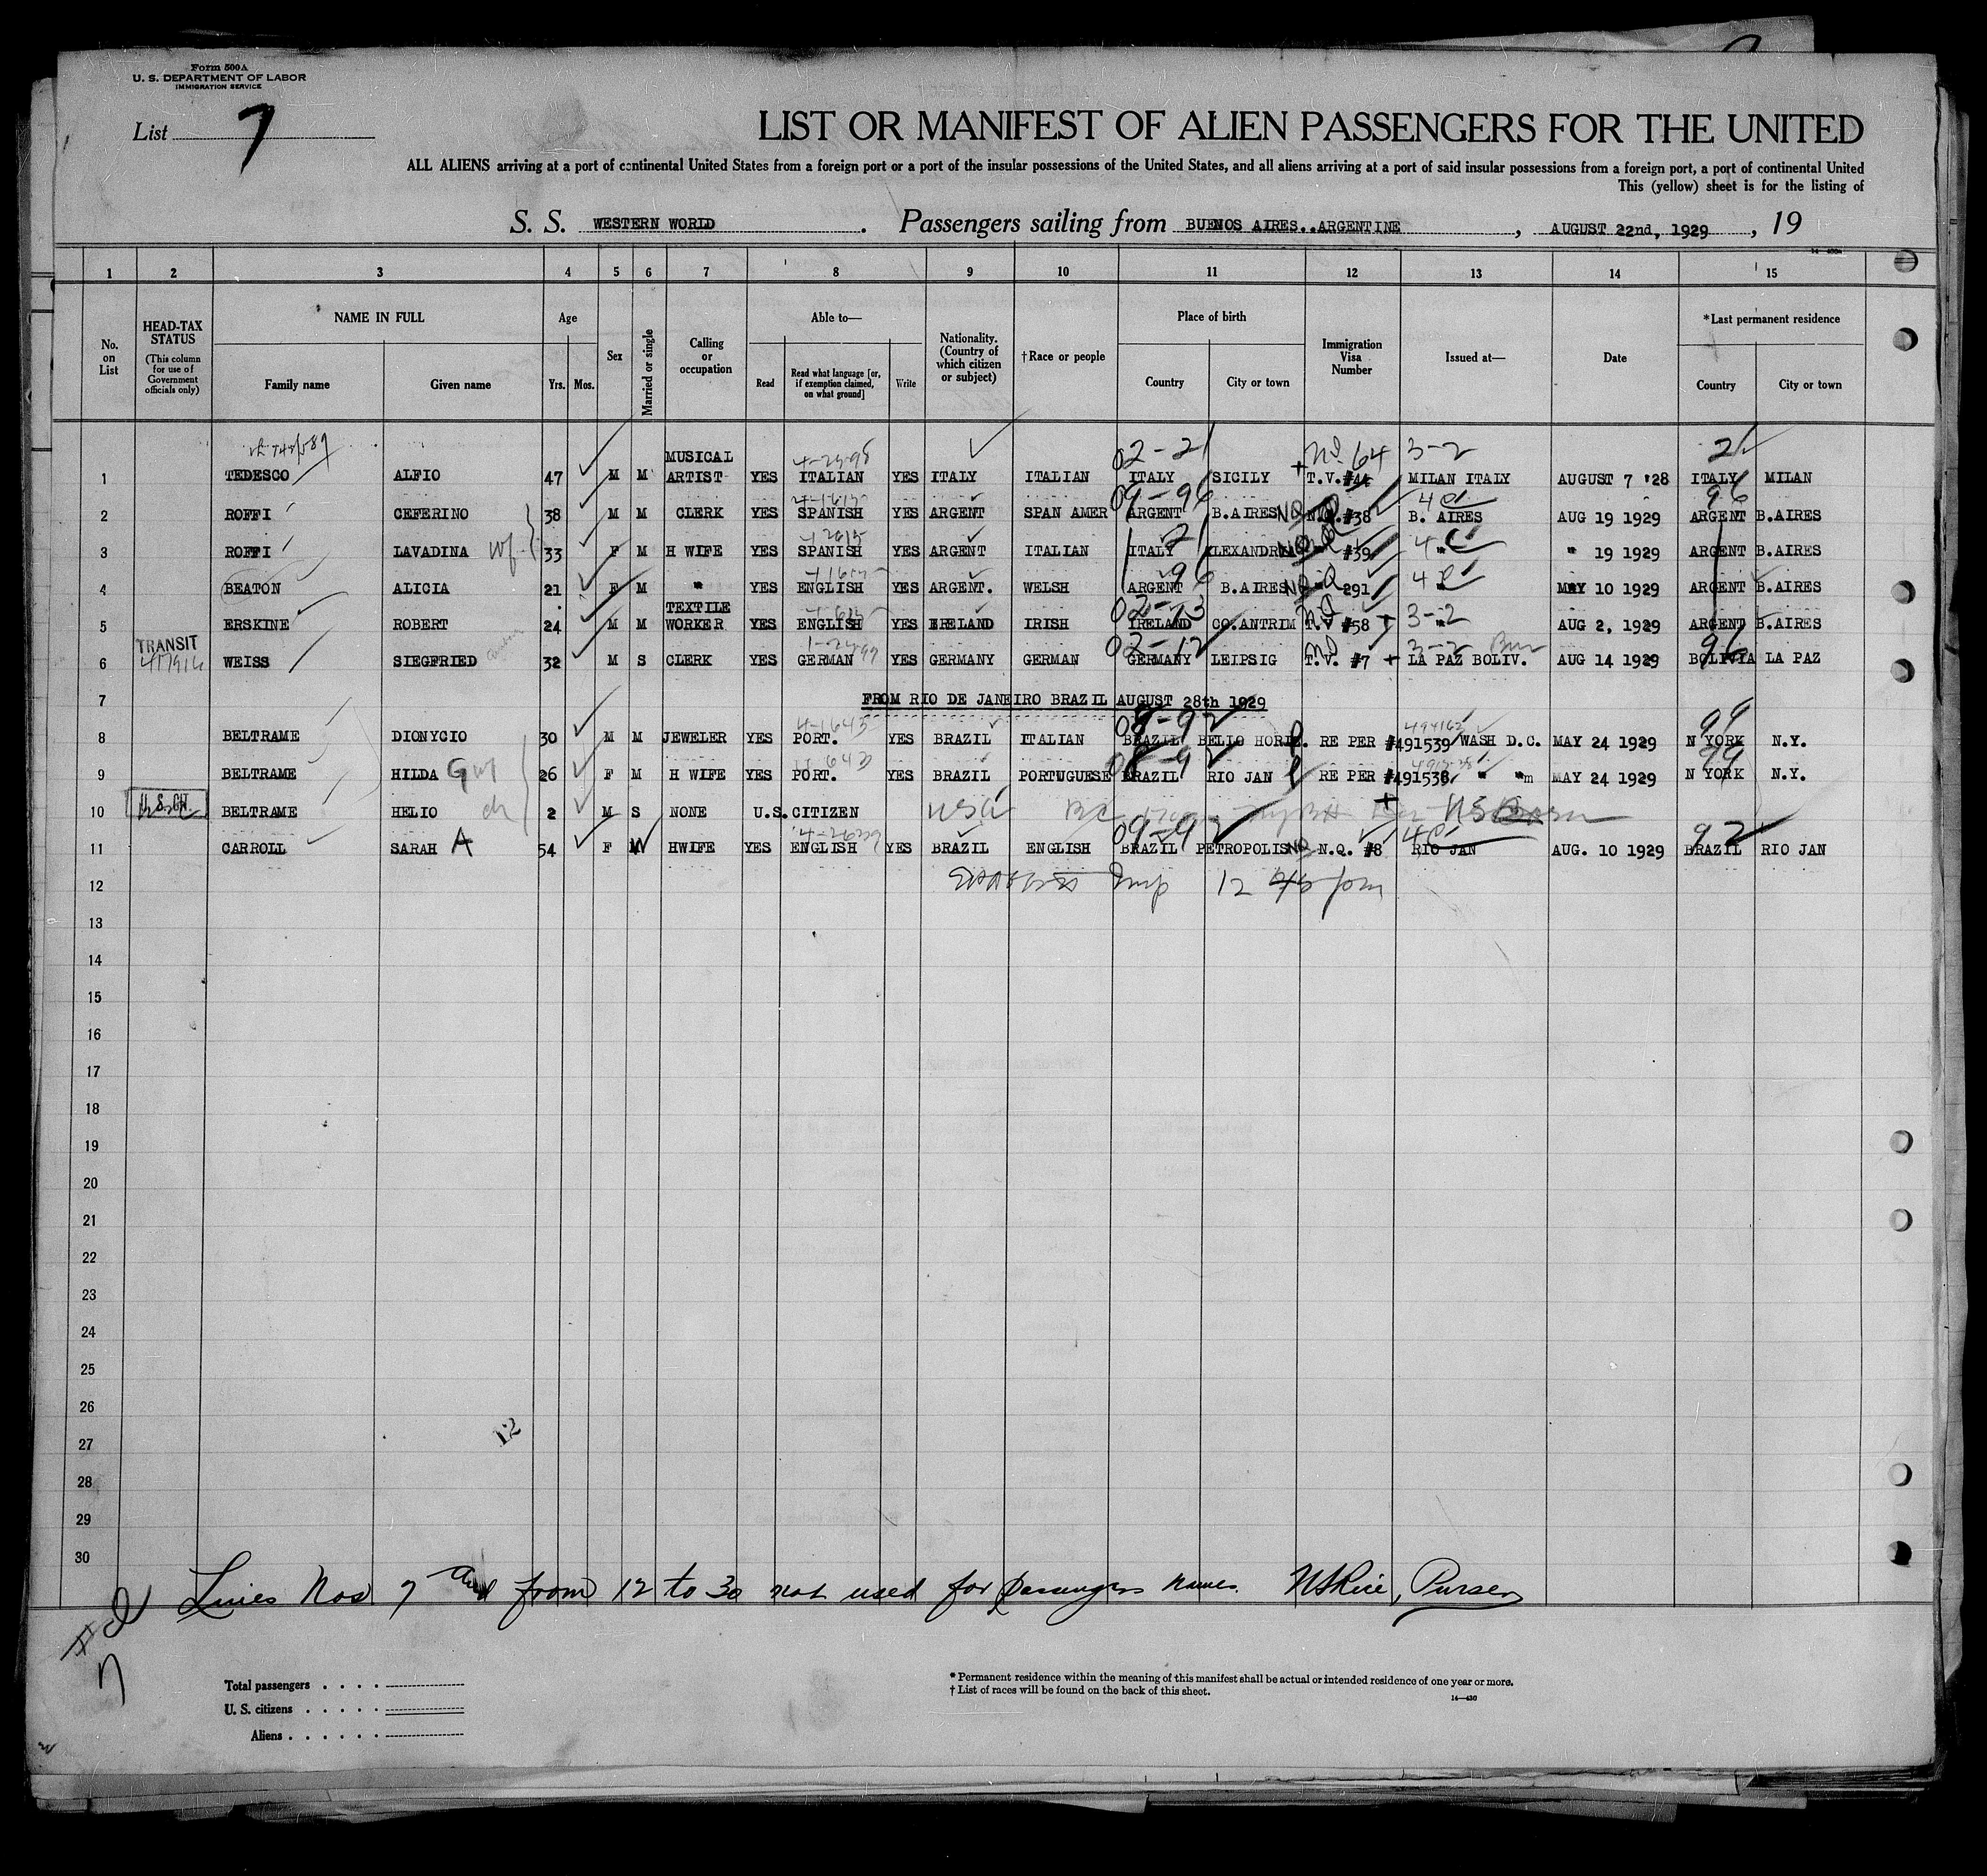 Form 500A
U. S. DEPARTMENT OF LABOR
IMMIGRATION SERVICE
List 7
LIST OR MANIFEST OF ALIEN PASSENGERS FOR THE UNITED
ALL ALIENS arriving at a port of continental United States from a foreign port or a port of the insular possessions of the United States, and all aliens arriving at a port of said insular possessions from a foreign port, a port of continental United
This (yellow) sheet is for the listing of
S. S. WESTERN WORLD. Passengers sailing from BUENOS AIRES..ARGENTINE, AUGUST 22nd, 1929, 19
14—430a
1 2 3 4 5 6 7 8 9 10 11 12 13 14 15
No. on List
HEAD-TAX STATUS (This column for use of Government officials only)
NAME IN FULL Family name Given name
Age Yrs. Mos.
Sex
Married or single
Calling or occupation
Able to— Read Read what language [or, if exemption claimed, on what ground] Write
Nationality. (Country of which citizen or subject)
†Race or people
Place of birth Country City or town
Immigration Visa Number
Issued at—
Date
*Last permanent residence Country City or town
02-21 No. 64 3-2 21
1 TEDESCO ALFIO 47 M M MUSICAL ARTIST YES ITALIAN YES ITALY ITALIAN ITALY SICILY T.V.#44 MILAN ITALY AUGUST 7 '28 ITALY MILAN
09-96 96
2 ROFFI CEFERINO 38 M M CLERK YES SPANISH YES ARGENT SPAN AMER ARGENT B.AIRES N.Q.#38 B. AIRES AUG 19 1929 ARGENT B.AIRES
21
3 ROFFI LAVADINA wf 33 F M H WIFE YES SPANISH YES ARGENT ITALIAN ITALY ALEXANDRIA #39 " " 19 1929 ARGENT B.AIRES
96
4 BEATON ALICIA 21 F M " YES ENGLISH YES ARGENT. WELSH ARGENT B.AIRES 291 " MAY 10 1929 ARGENT B.AIRES
02-13
5 ERSKINE ROBERT 24 M M TEXTILE WORKER YES ENGLISH YES IRELAND IRISH IRELAND CO.ANTRIM T.V #58 3-2 AUG 2, 1929 ARGENT B.AIRES
TRANSIT 02-12 3-2 96
6 WEISS SIEGFRIED 32 M S CLERK YES GERMAN YES GERMANY GERMAN GERMANY LEIPSIG T.V. #7 LA PAZ BOLIV. AUG 14 1929 BOLIVIA LA PAZ
7 FROM RIO DE JANEIRO BRAZIL AUGUST 28th 1929
08-92 99
8 BELTRAME DIONYCIO 30 M M JEWELER YES PORT. YES BRAZIL ITALIAN BRAZIL BELLO HORIZ. RE PER #491539 WASH D.C. MAY 24 1929 N YORK N.Y.
99
9 BELTRAME HILDA G wf 26 F M H WIFE YES PORT. YES BRAZIL PORTUGUESE BRAZIL RIO JAN RE PER #491538 " "m MAY 24 1929 N YORK N.Y.
10 BELTRAME HELIO ch 2 M S NONE U.S. CITIZEN USC
09-92 92
11 CARROLL SARAH A 54 F W HWIFE YES ENGLISH YES BRAZIL ENGLISH BRAZIL PETROPOLIS N.Q. #8 RIO JAN AUG. 10 1929 BRAZIL RIO JAN
12 12 45 pm
13
14
15
16
17
18
19
20
21
22
23
24
25
26
12
27
28
29
30
Lines Nos 7 and from 12 to 30 not used for passengers names. Purser
7
Total passengers
U. S. citizens
Aliens
* Permanent residence within the meaning of this manifest shall be actual or intended residence of one year or more.
† List of races will be found on the back of this sheet.
14—430